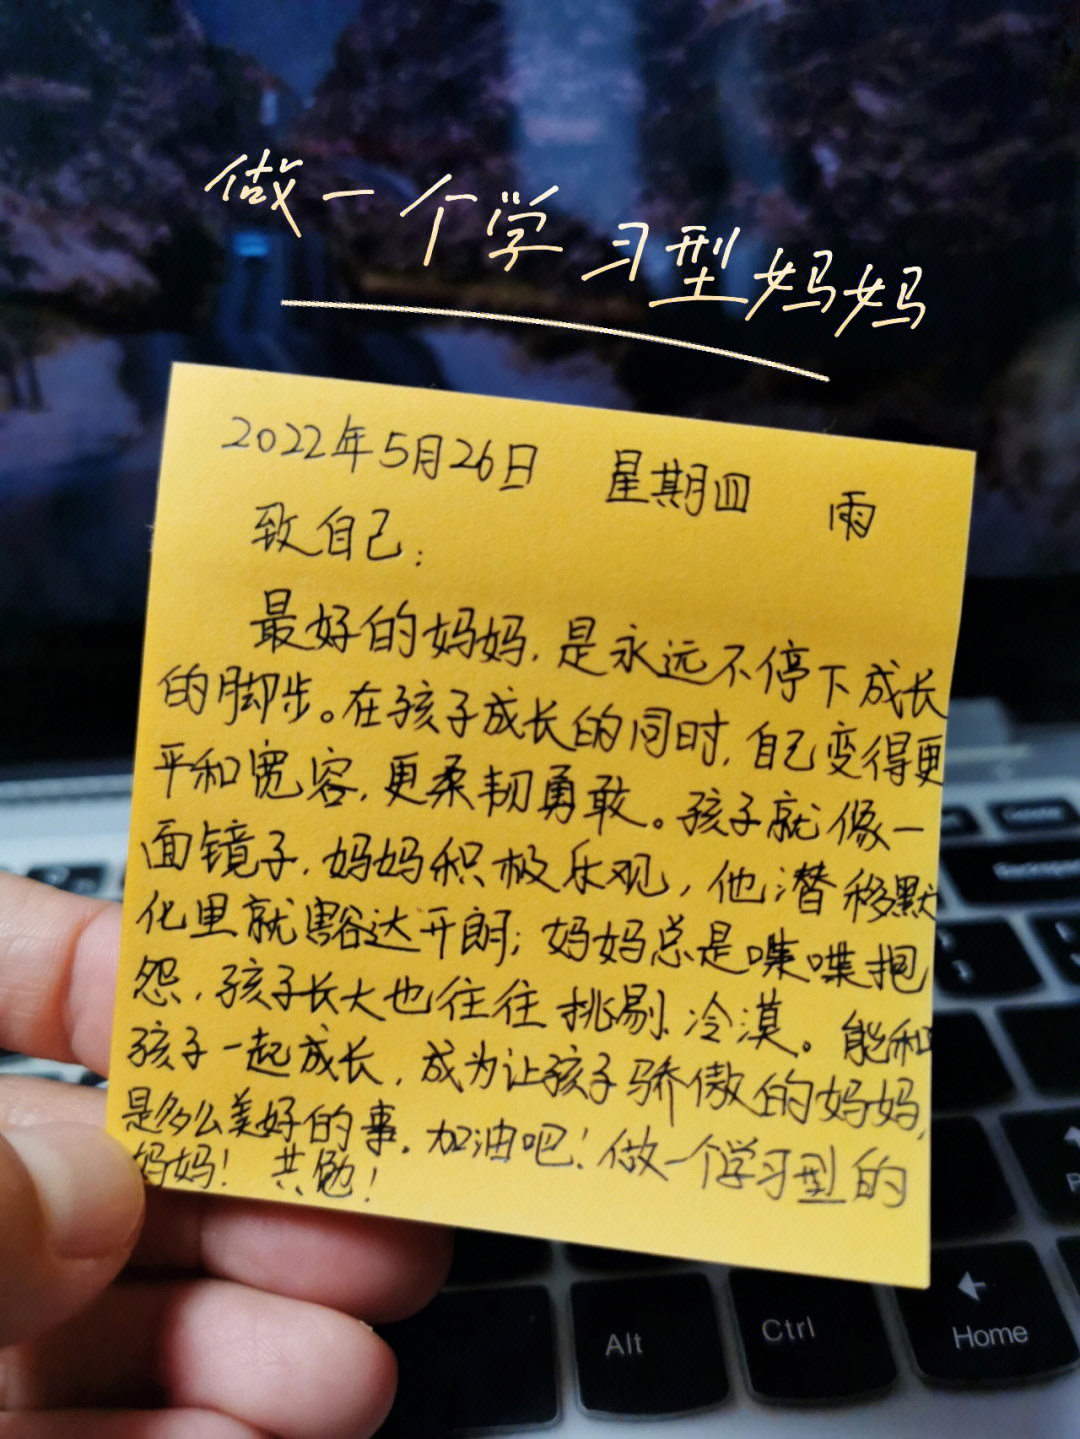 做一个学习型妈妈
2022年5月26日 星期四 雨
致自己:
最好的妈妈,是永远不停下成长
的脚步。在孩子成长的同时,自己变得更
平和宽容,更柔韧勇敢。孩子就像一
面镜子,妈妈积极乐观,他潜移默
化里就豁达开朗;妈妈总是喋喋抱
怨,孩子长大也往往挑剔冷漠。能和
孩子一起成长,成为让孩子骄傲的妈妈,
是多么美好的事。加油吧!做一个学习型的
妈妈!共勉!
Backspace
Alt
Ctrl
Home